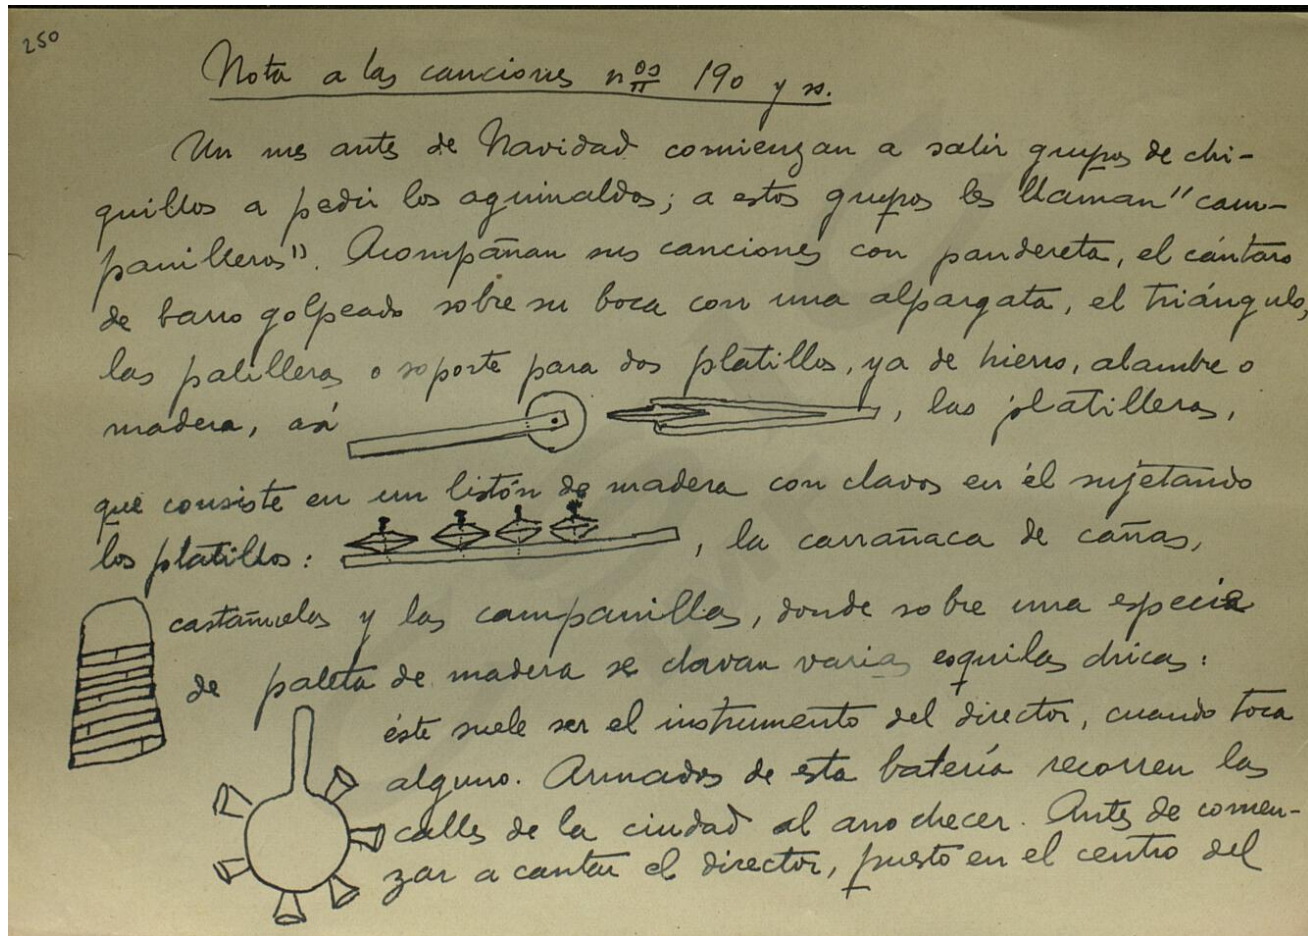 250
Nota a las canciones nos 190 y ss.
Un mes antes de Navidad comienzan a salir grupos de chi-
quillos a pedir los aguinaldos; a estos grupos les llaman "cam-
panilleros". Acompañan sus canciones con pandereta, el cántaro
de barro golpeado sobre su boca con una alpargata, el triángulo,
las palilleras o soporte para dos platillos, ya de hierro, alambre o
madera, así , las platilleras,
que consiste en un listón de madera con clavos en él sujetando
los platillos: , la carrañaca de cañas,
castañuelas y las campanillas, donde sobre una especie
de paleta de madera se clavan varias esquilas chicas:
éste suele ser el instrumento del director, cuando toca
alguno. Armados de esta batería recorren las
calles de la ciudad al anochecer. Antes de comen-
zar a cantar el director, puesto en el centro del